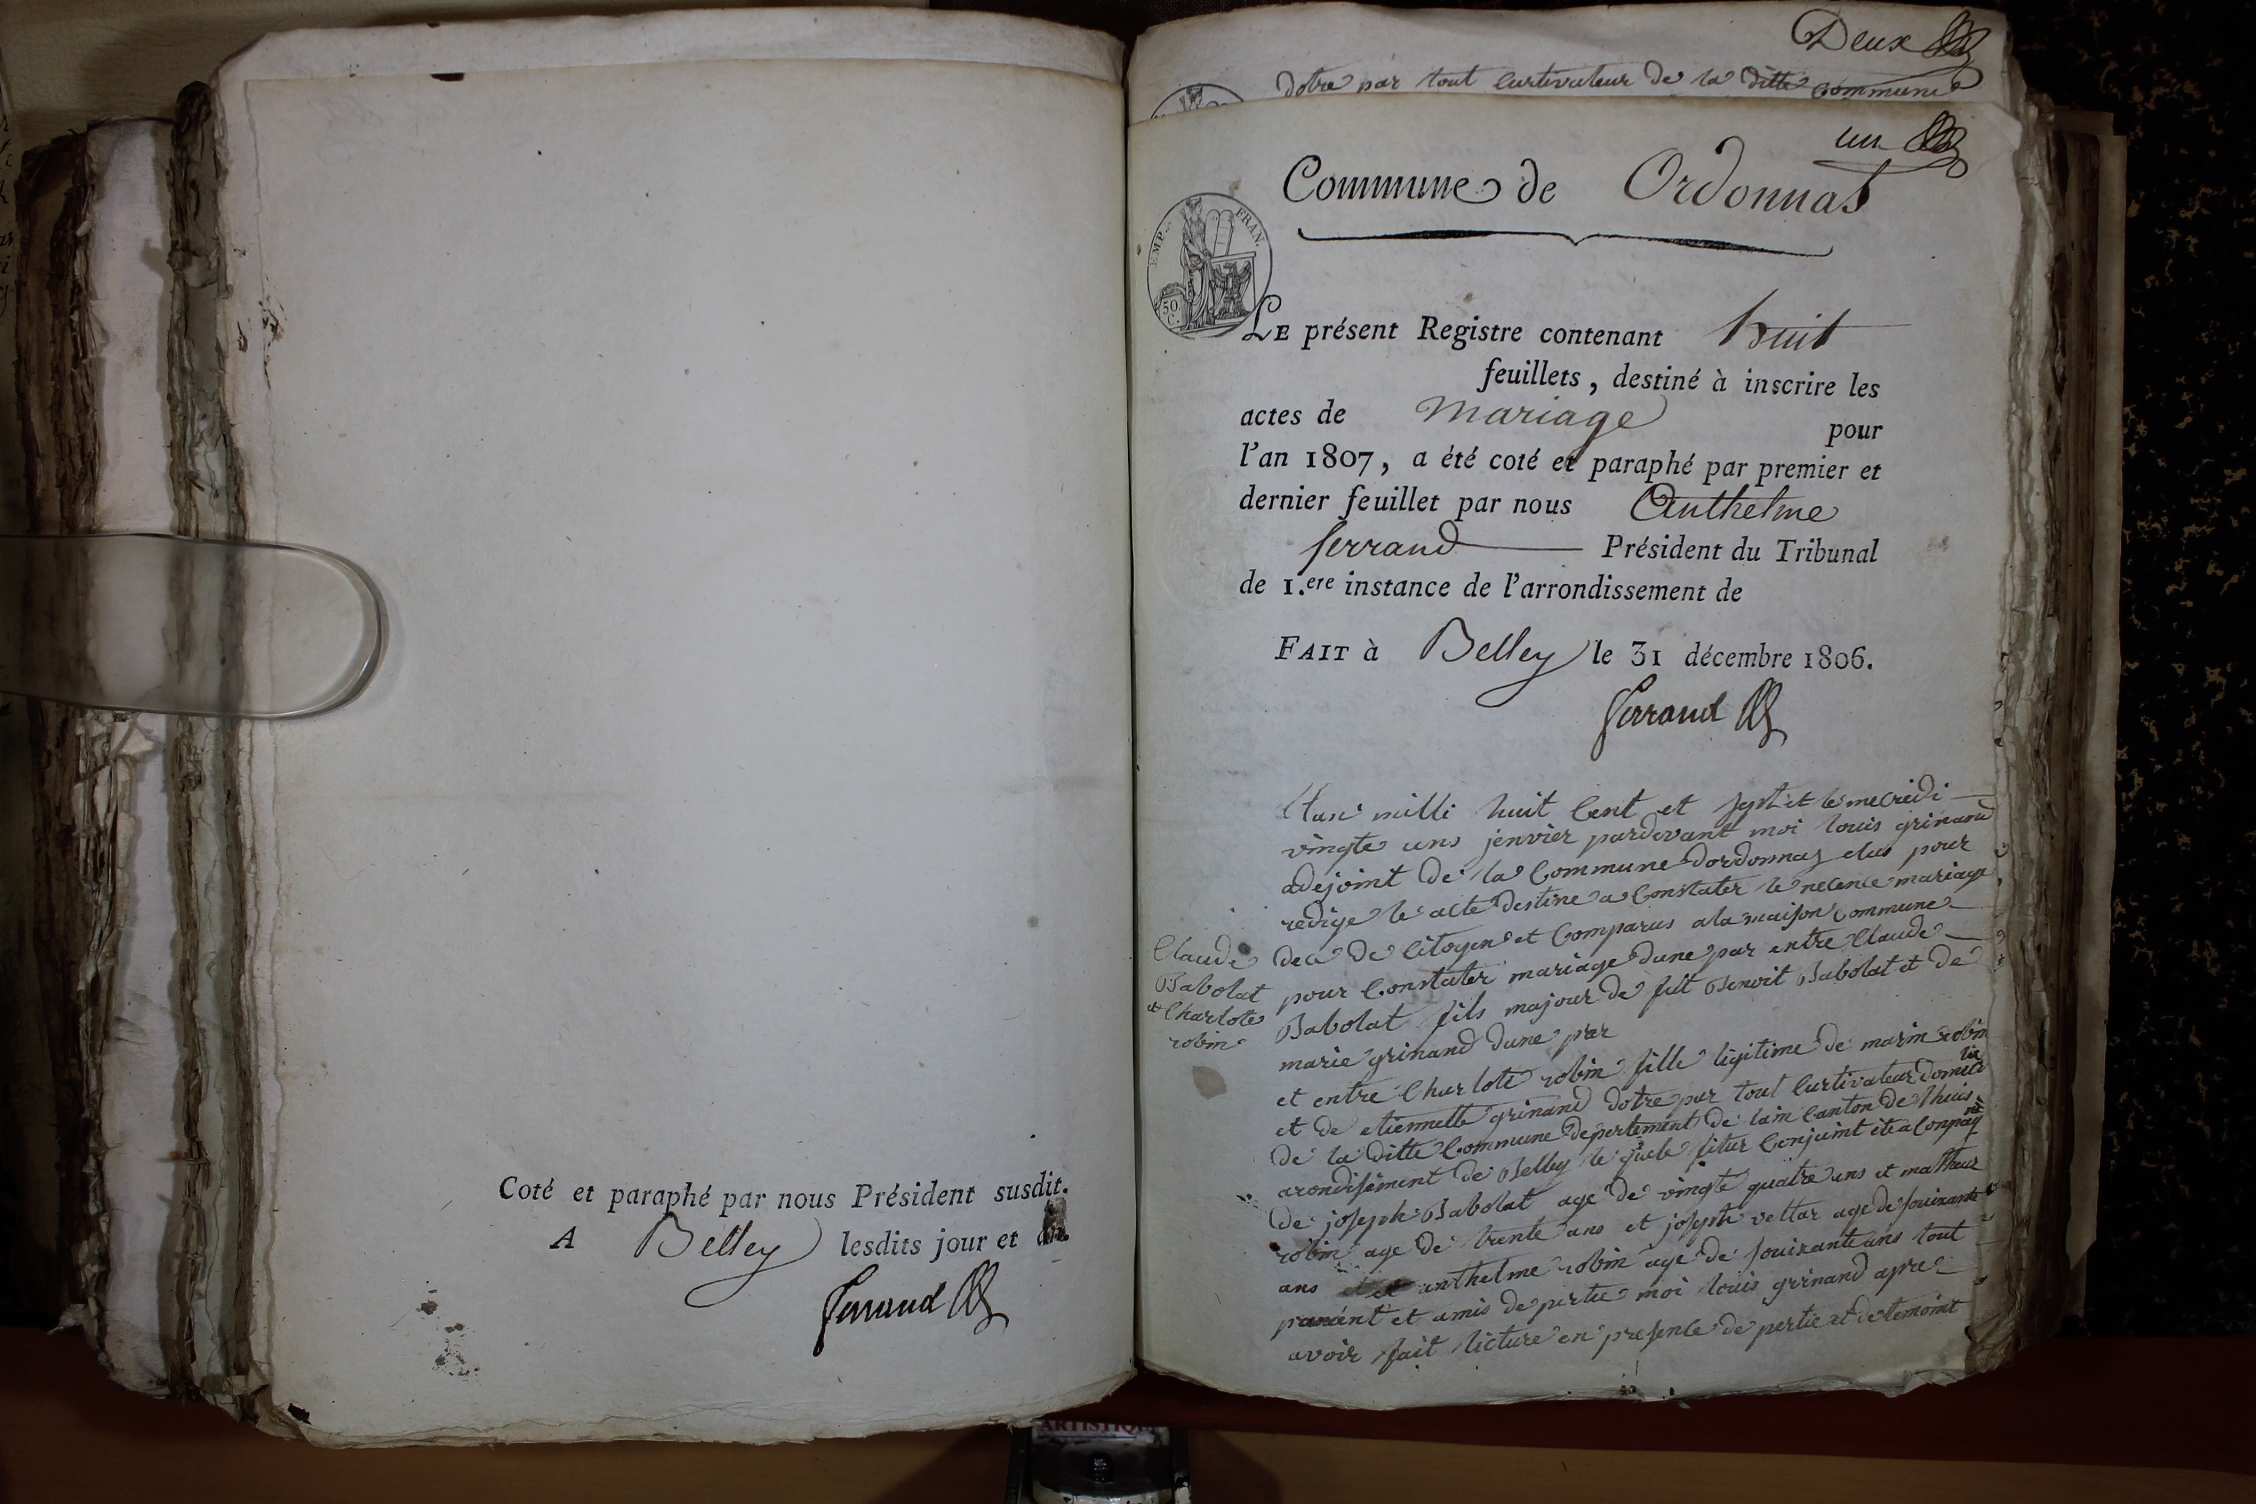 Coté et paraphé par nous Président susdit.
A Belley lesdits jour et an.
Ferrand
Deux
dotre par tout Curtivateur de la ditte Commune
un
Commune de Ordonnas
EMP. FRAN.
50 C.
LE présent Registre contenant huit
feuillets, destiné à inscrire les
actes de mariage pour
l'an 1807, a été coté et paraphé par premier et
dernier feuillet par nous Anthelme
ferrand Président du Tribunal
de 1.ere instance de l'arrondissement de
FAIT à Belley le 31 décembre 1806.
Ferrand
milli huit Cent et sept et le mecredi
vingte uns jenvier pardevant moi louis grinand
adejoint de la Commune dordonnas elus pour
redige le acte destine a Constater le mariage
de Citoyen et Comparus a la maison Commune
pour Constater mariage dune par entre Claude
Babolat fils majour de fut Benoit Babolat et de
marie grinand dune par
Claude
Babolat
et Charlote
robin
et entre Charlote robin fille legitime de marin robin
et de etiennette grinand dotre par tout Curtivateur domici
lie
de la ditte Commune depertement de lain Canton de lhuis
arondisement de Belley futur Conjoint ete a Conpag
ne
de joseph Babolat age de vingte quatre ans et matheur
robin age de trente ans et joseph vettar age de souixante
ans anthelme robin age de souixante ans tout
parent et amis de pertie moi louis grinand apre
avoir fait licture en presence de pertie et de temoint
ARTISTIQUE